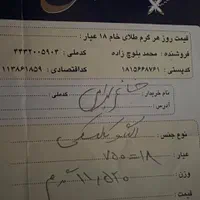 قیمت روز هر گرم طلای خام ۱۸ عیار:
فروشنده: محمد بلوچ زاده کدملی: ۳۳۳۲۰۰۵۹۰۳
کدپستی: ۱۸۱۵۶۶۸۷۶۱ کداقتصادی: ۱۱۳۸۶۱۸۵۹
نام خریدار: کدملی:
آدرس:
نوع جنس:
عیار ۱۸=۷۵۰
وزن ۱۱,۵۲۰ گرم
قیمت